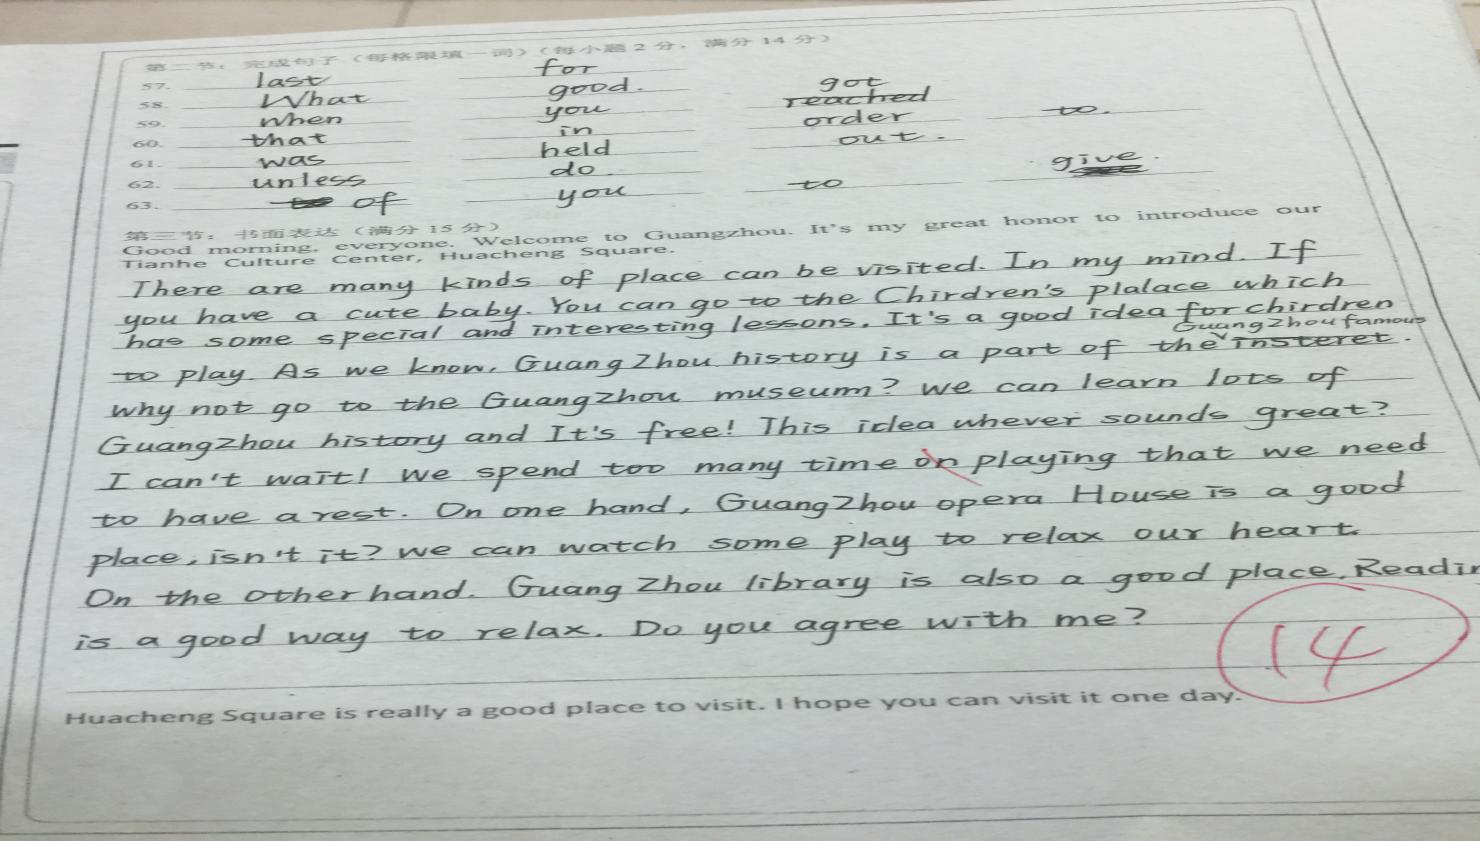 第二节：完成句子（每格限填一词）（每小题 2 分，满分 14 分）
57. last for
58. What good. got
59. when you reached
60. that in order to.
61. was held out.
62. unless do. give.
63. to of you to
第三节：书面表达（满分 15 分）
Good morning, everyone. Welcome to Guangzhou. It's my great honor to introduce our
Tianhe Culture Center, Huacheng Square.
There are many kinds of place can be visited. In my mind. If
you have a cute baby. You can go to the Chirdren's plalace which
has some special and interesting lessons. It's a good idea for chirdren
GuangZhou famous
to play. As we know, GuangZhou history is a part of the insteret.
why not go to the Guangzhou museum? we can learn lots of
Guangzhou history and It's free! This idea whever sounds great?
I can't wait! we spend too many time on playing that we need
to have a rest. On one hand, GuangZhou opera House is a good
place, isn't it? we can watch some play to relax our heart.
On the other hand. GuangZhou library is also a good place. Readin
is a good way to relax. Do you agree with me?
14
Huacheng Square is really a good place to visit. I hope you can visit it one day.